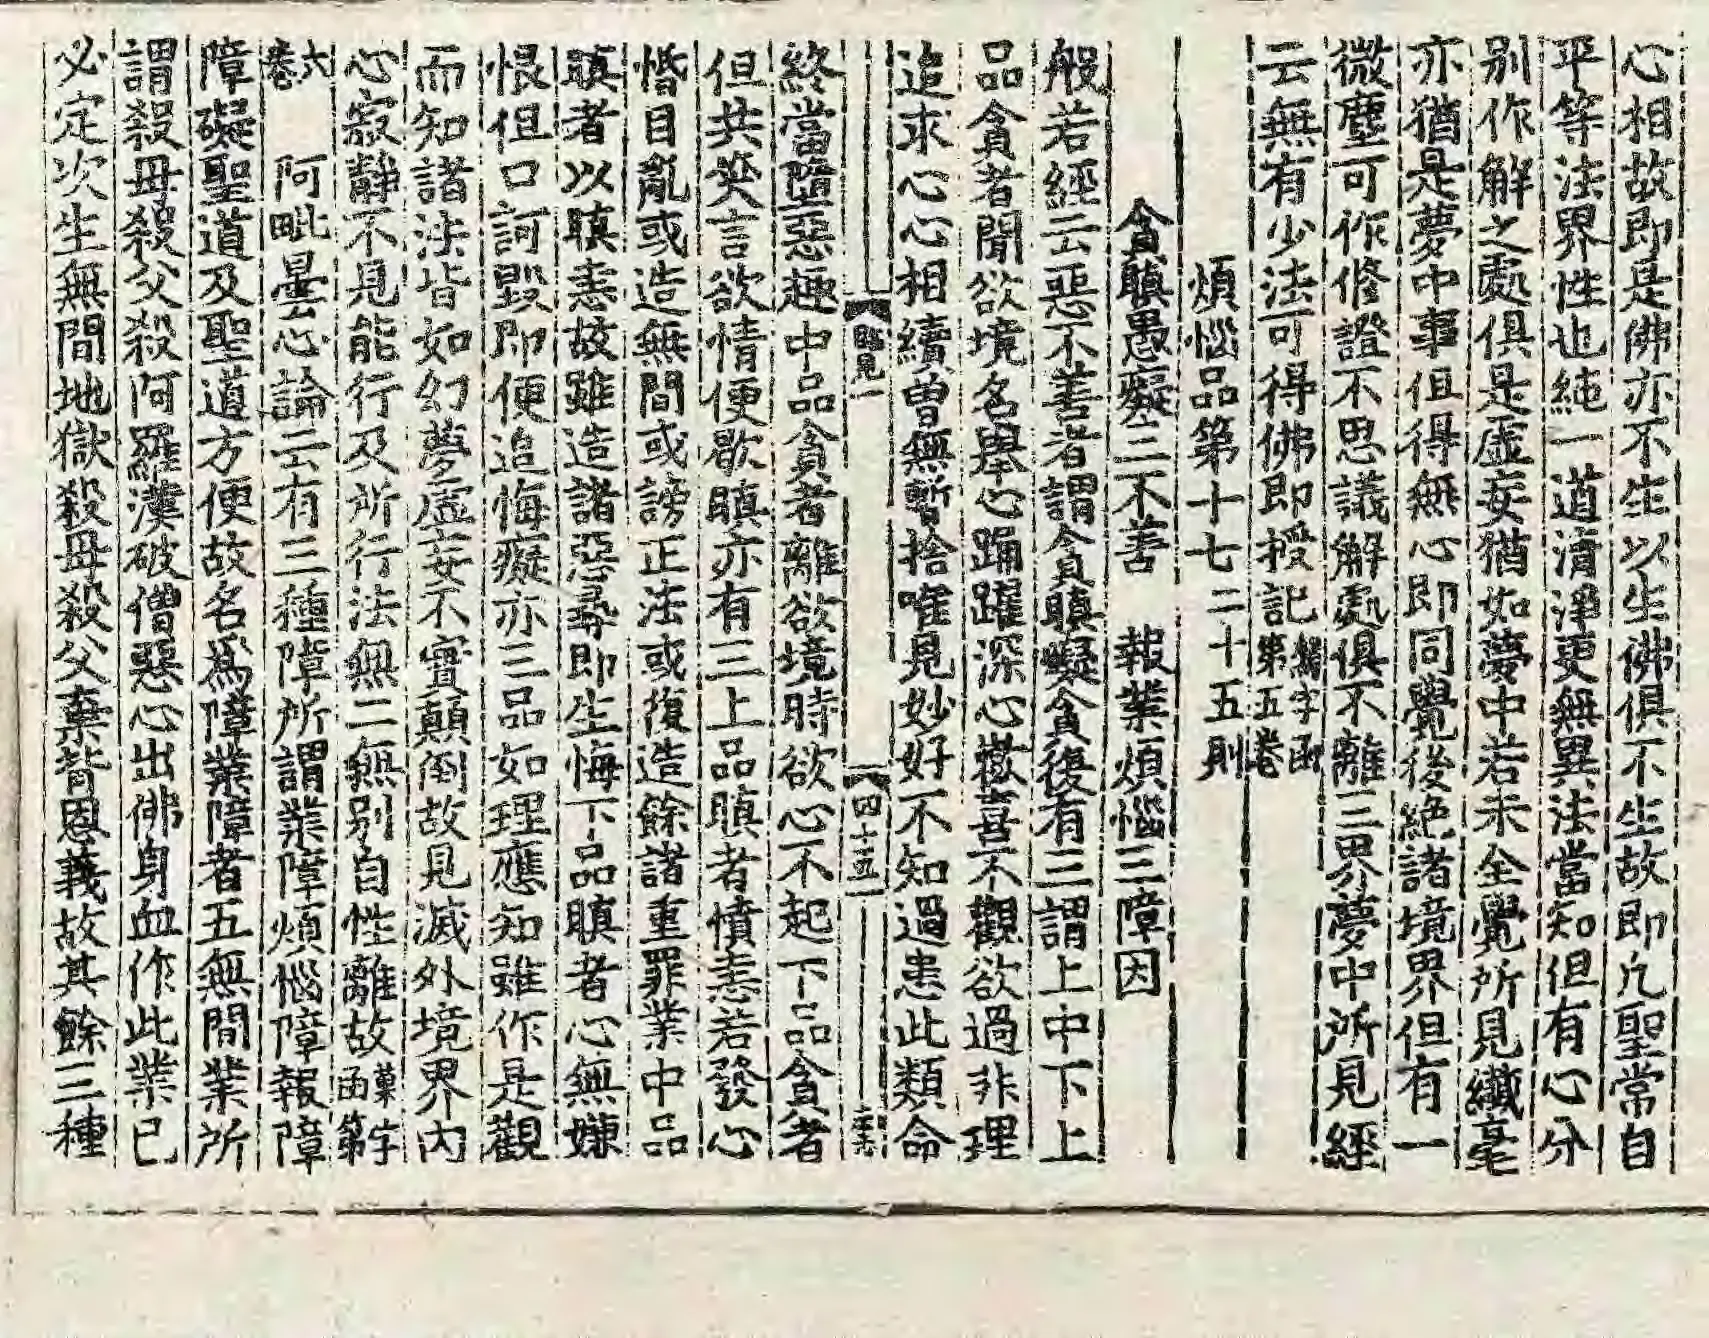 心相故即是佛亦不生以生佛俱不生故即凢聖常自
平等法界性也純一道清淨更無異法當知但有心分
别作解之處俱是虛妄猶如夢中若未全覺所見纖毫
亦猶是夢中事但得無心即同覺後絶諸境界但有一
微塵可作修證不思議解處俱不離三界夢中所見經
云無有少法可得佛即授記第五卷
煩惱品第十七二十五則
貪瞋愚癡三不善　報業煩惱三障因
般若經云惡不善者謂貪瞋癡貪復有三謂上中下上
品貪者聞欲境名舉心踊躍深心歡喜不觀欲過非理
追求心心相續曾無暫捨唯見妙好不知過患此類命
四十五
終當墮惡趣中品貪者離欲境時欲心不起下品貪者
但共笑言欲情便歇瞋亦有三上品瞋者憤恚若發心
惛目亂或造無間或謗正法或復造餘諸重罪業中品
瞋者以瞋恚故雖造諸惡尋即生悔下品瞋者心無嫌
恨但口訶毀即便追悔癡亦三品如理應知雖作是觀
而知諸法皆如幻夢虛妄不實顛倒故見滅外境界內
心寂靜不見能行及所行法無二無别自性離故菓字函第
六卷　阿毗曇心論云有三種障所謂業障煩惱障報障
障礙聖道及聖道方便故名爲障業障者五無間業所
謂殺母殺父殺阿羅漢破僧惡心出佛身血作此業已
必定次生無間地獄殺母殺父棄背恩義故其餘三種